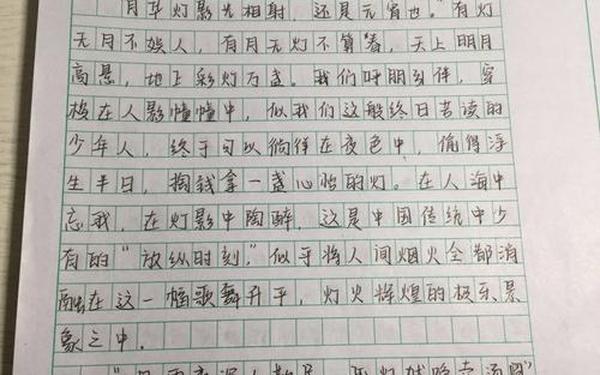 "月华灯影光相射，还是元宵也。"有灯
无月不娱人，有月无灯不算春，天上明月
高悬，地上彩灯万盏。我们呼朋引伴，穿
梭在人影幢幢中，似我们这般终日苦读的
少年人，终于可以徜徉在夜色中，偷得浮
生半日，掏钱拿一盏心怡的灯。在人海中
忘我，在灯影中陶醉，这是中国传统中少
有的"放纵时刻"，似乎将人间烟火全都消
融在这一幅歌舞升平，灯火辉煌的极乐景
象之中。